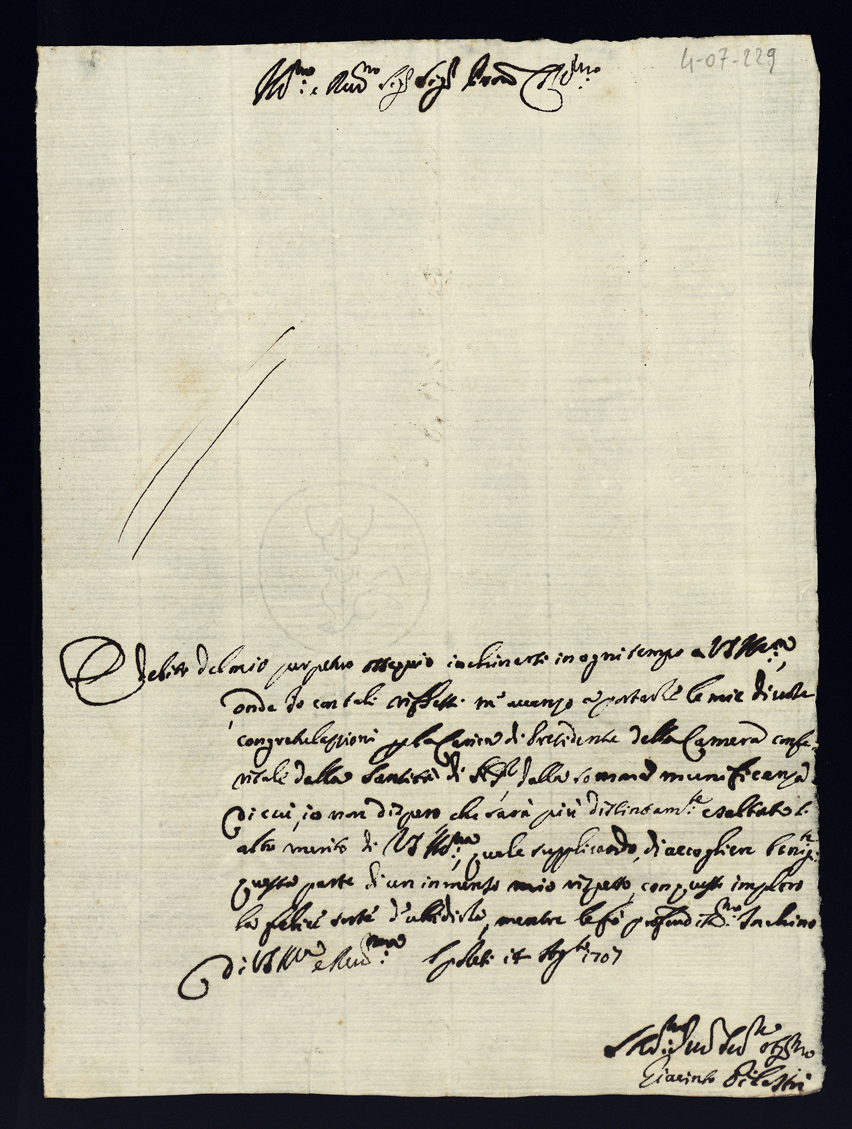 4-07-229
Ill.mo e Rev.mo Sig.r Sig.r Pron Col.mo
È debito del mio perpetuo ossequio inchinarti in ogni tempo a VS Ill.ma,
onde io con tali riflessi m'avanzo a portarle le mie divote
congratulazioni p la Carica di Presidente della Camera confe-
ritale dalla Santità di N.S., dalla somma munificenza
di cui, io non dispero, che sarà più distintam.te esaltato l'
alto merito di VS Ill.ma, quale supplicando, di accogliere benig.te
questa parte di un immenso mio rispetto, con questo imploro
la felice sorte d'ubidirla, mentre le fò profondiss.mo Inchino
Di VS Ill.ma e Rev.ma Spoleti 14 1707
Giacinto